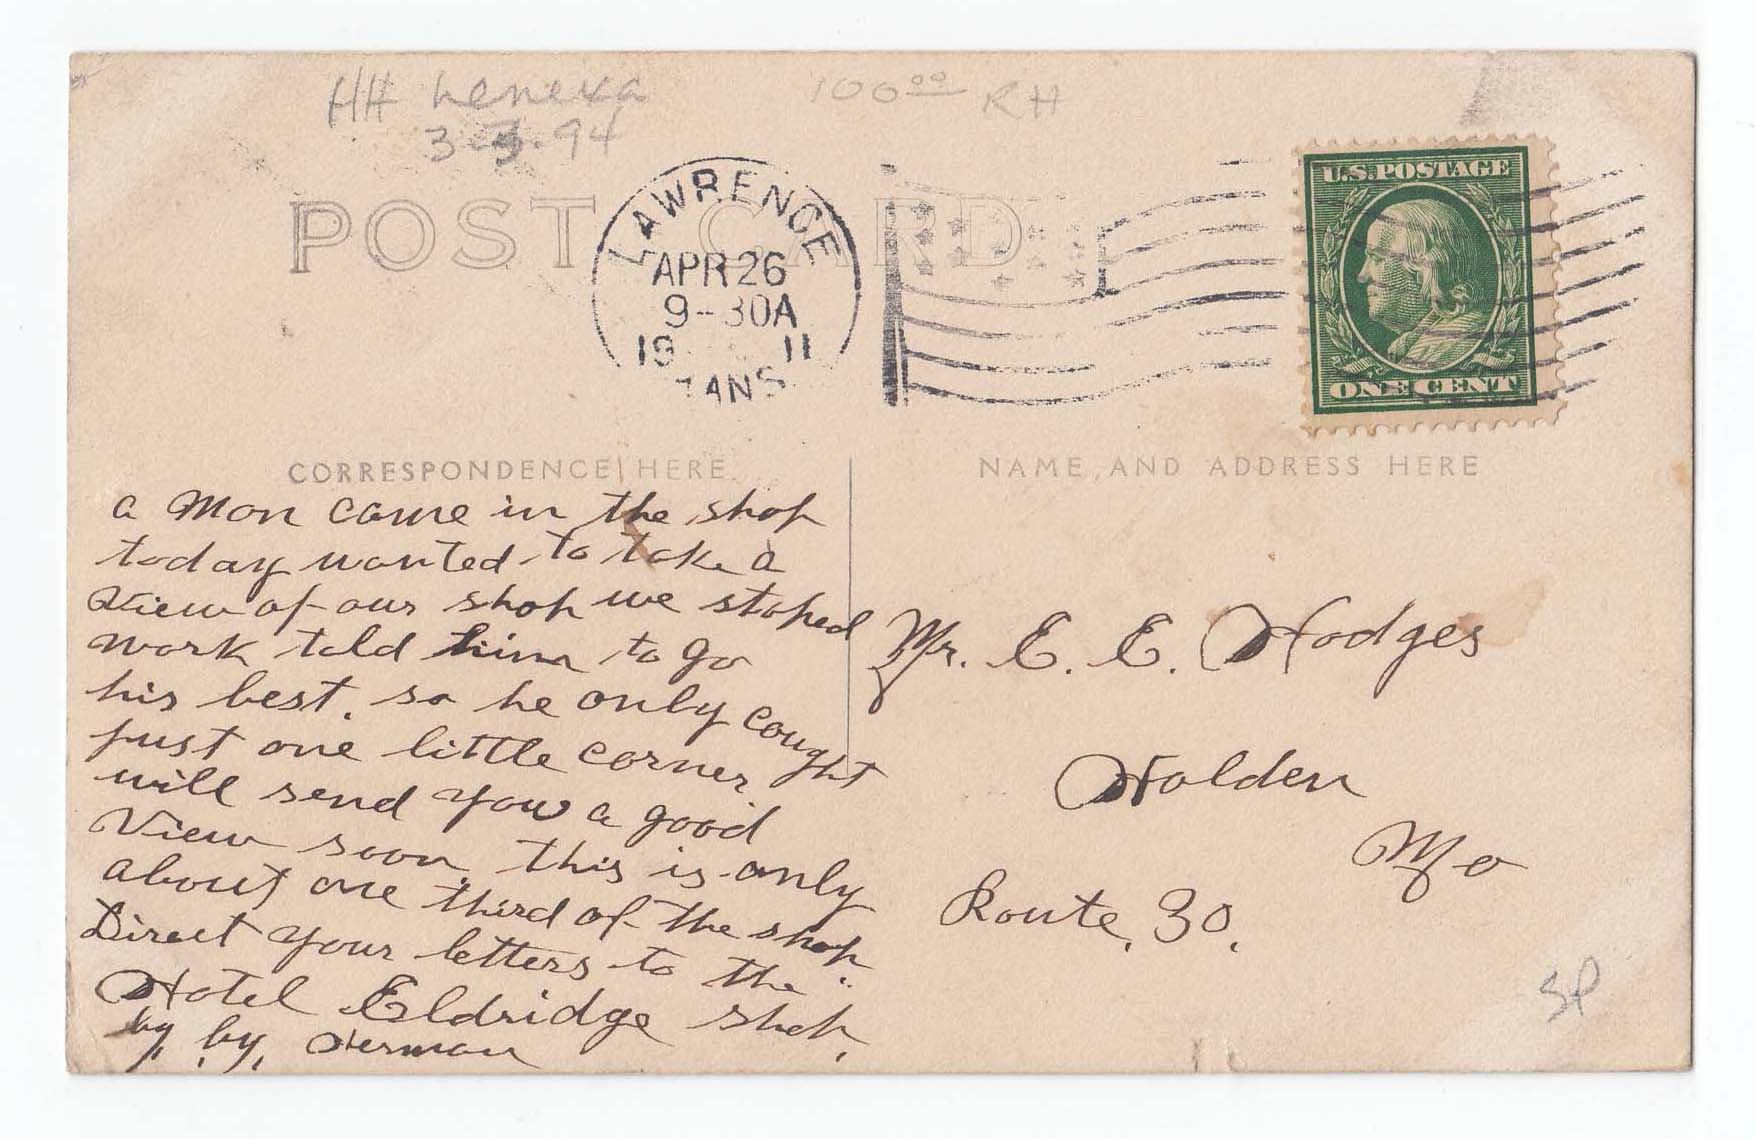 HH Lenexa
3-3-94
100.00 RH
POST CARD
LAWRENCE
APR 26
9-30A
19 11
KANS
U.S. POSTAGE
ONE CENT
CORRESPONDENCE HERE
NAME AND ADDRESS HERE
a Man came in the shop
today wanted to take a
View of our shop we stoped
work told him to go
his best. so he only caught
just one little corner
will send you a good
View soon, this is only
about one third of the shop
Direct your letters to the
Hotel Eldridge shop,
by, by, Herman
Mr. E. E. Hodges
Holden
Mo
Route, 30.
SP